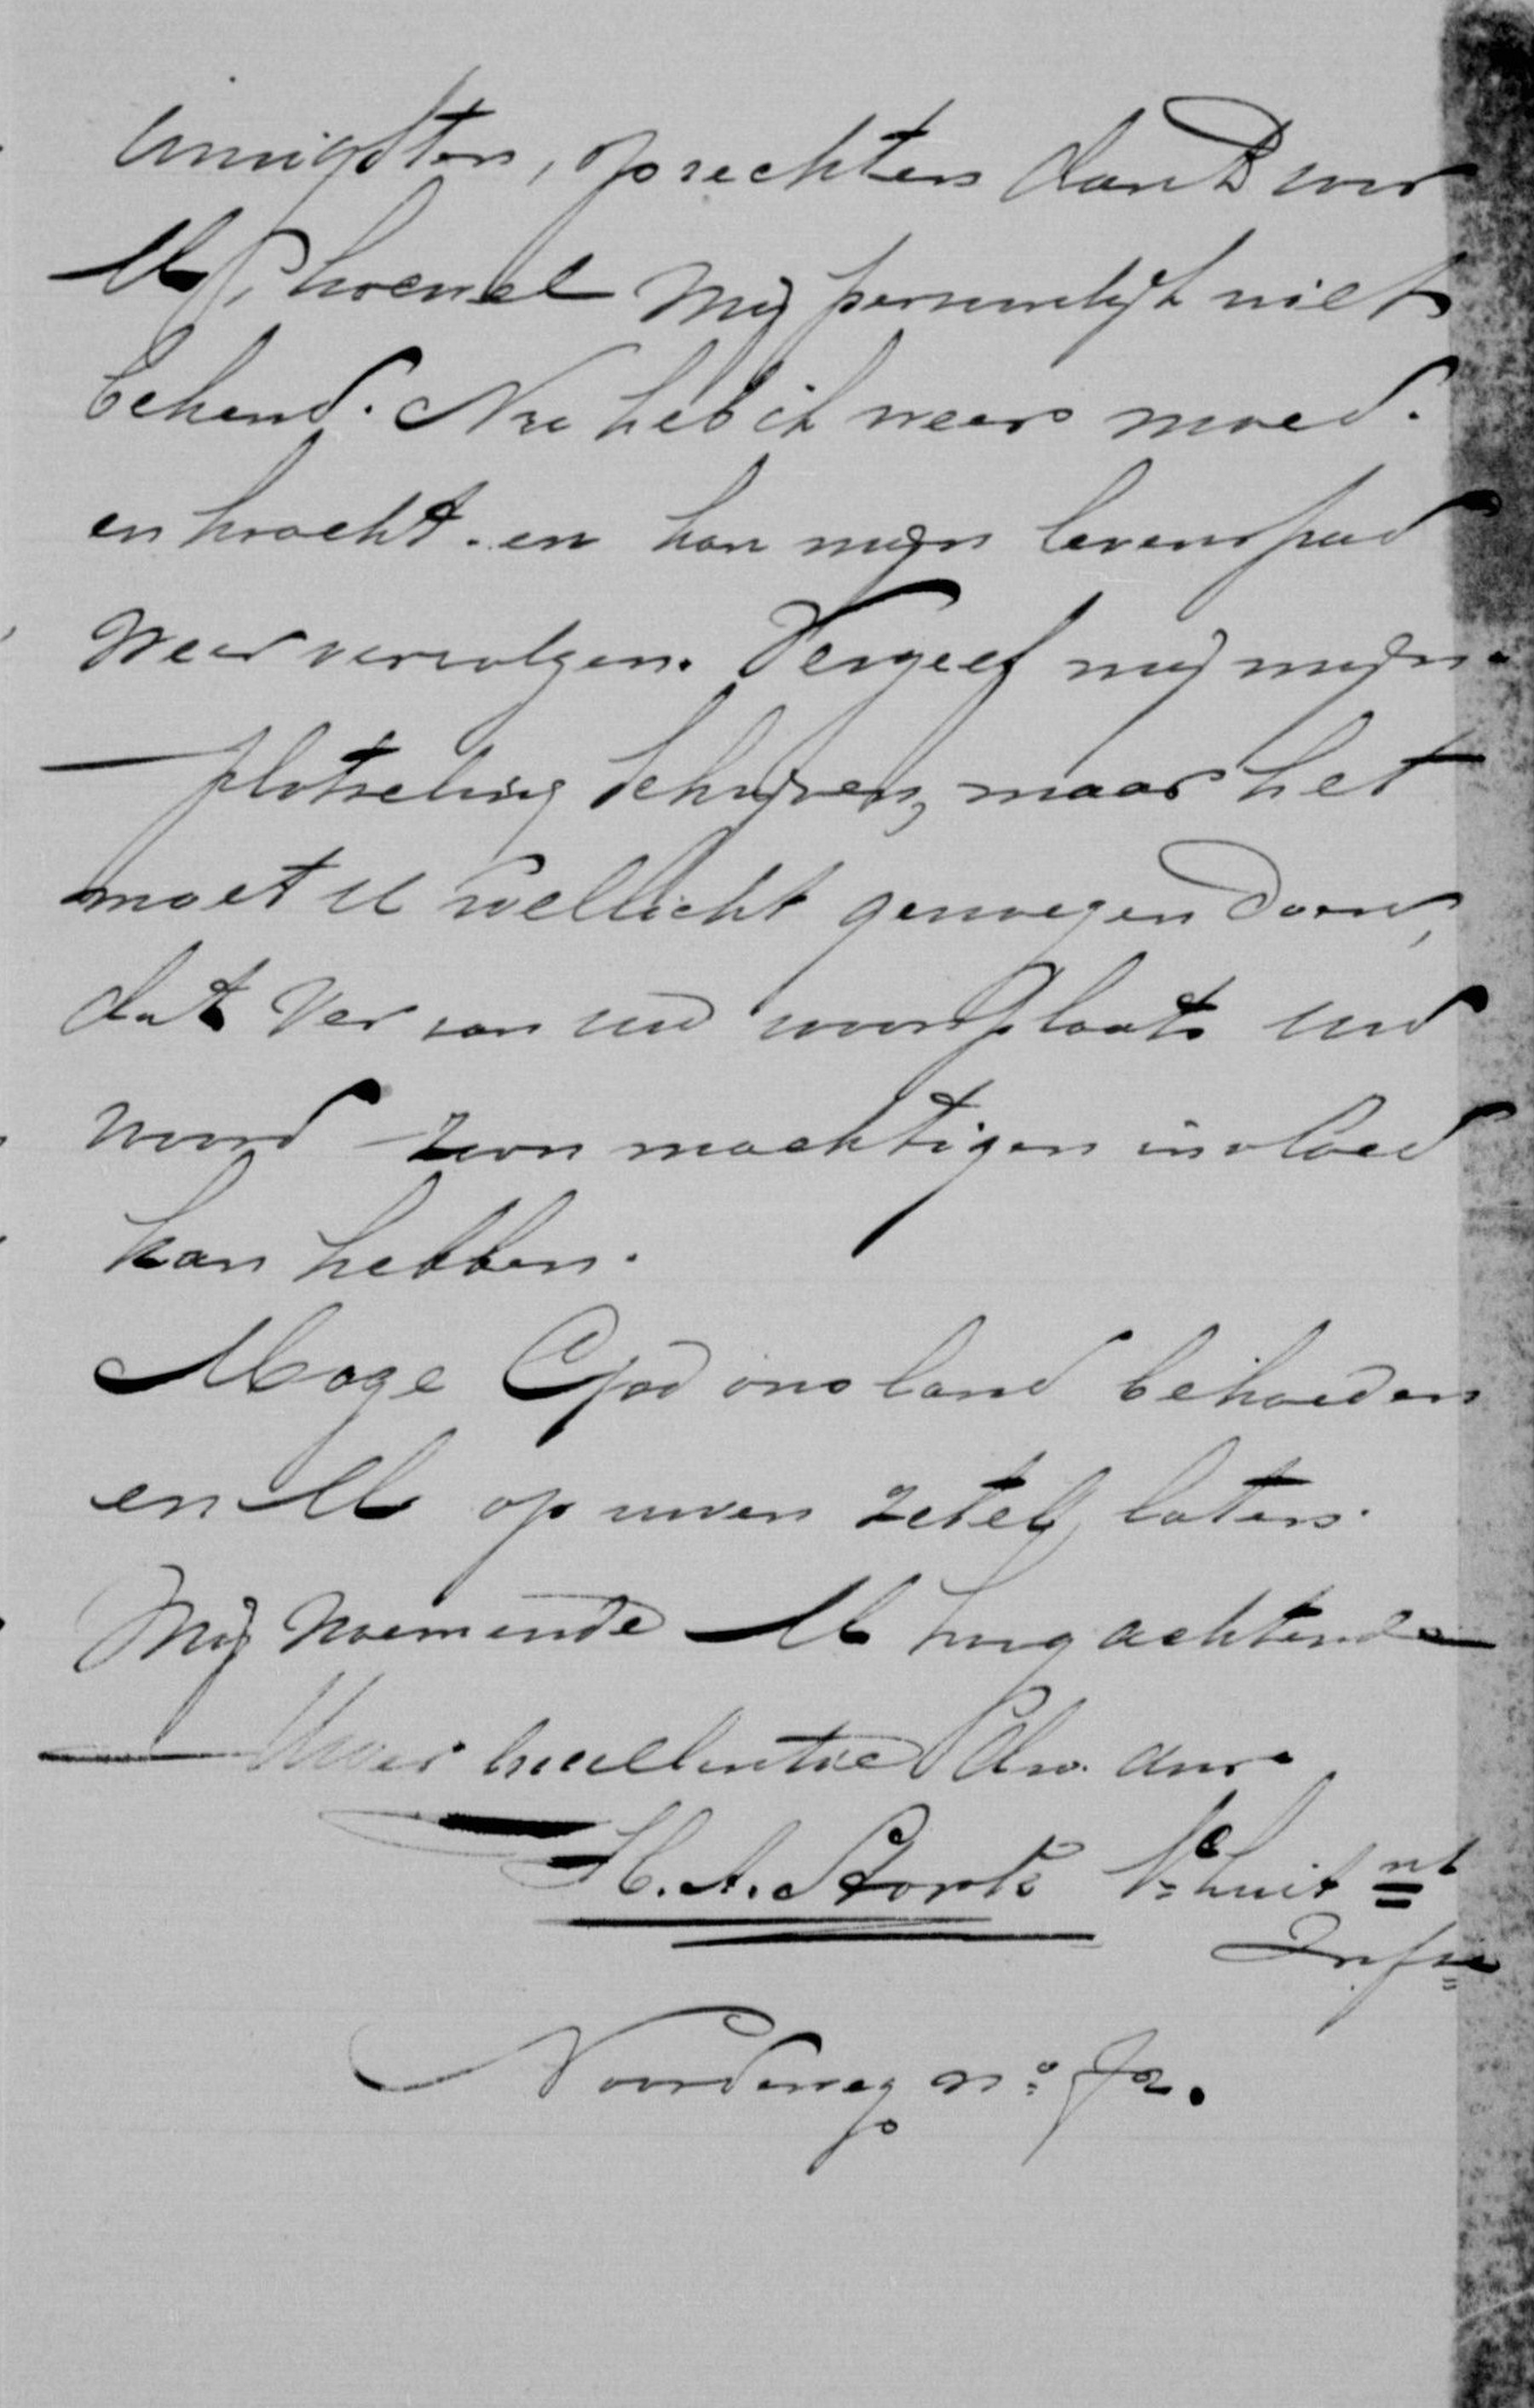 innigsten, oprechten dank voor
U, hoewel mij persoonlijk niet
bekend. Nu heb ik weer moed.
en kracht. en kan mijn levenspad
weer vervolgen. Vergeef mij mijn
plotseling schrijven, maar het
moet U wellicht genoegen doen,
dat ver van uw woonplaats uw
woord zoon machtigen invloed
kan hebben.
Moge God ons land behoeden
en U op uwen zetel laten.
Mij noemende U hoogachtende
Uwer Excellentie dw. dnr.
H. A. Stork 1e Luit nt
Infie
Noorderweg no.